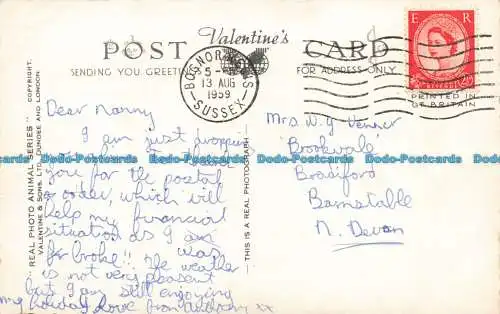 Valentine's
POST CARD
SENDING YOU GREETINGS
FOR ADDRESS ONLY
BOGNOR REGIS
5-
13 AUG
1959
SUSSEX
E R
PRINTED IN
GT BRITAIN
"REAL PHOTO ANIMAL SERIES" COPYRIGHT.
VALENTINE & SONS. LTD. DUNDEE AND LONDON
THIS IS A REAL PHOTOGRAPH
Dear Nanny
I am just dropping
you for the postal
order, which will
help my financial
situation as I was
broke!! The weather
is not very pleasent
but I am still enjoying
my holiday. Love from Anthony xx
Mrs W G Venner
Brookvale
Bradiford
Barnstable
N. Devon
Dodo-Postcards Dodo-Postcards Dodo-Postcards Dodo-Postcards Dodo-Postcards
Dodo-Postcards Dodo-Postcards Dodo-Postcards Dodo-Postcards Dodo-Postcards